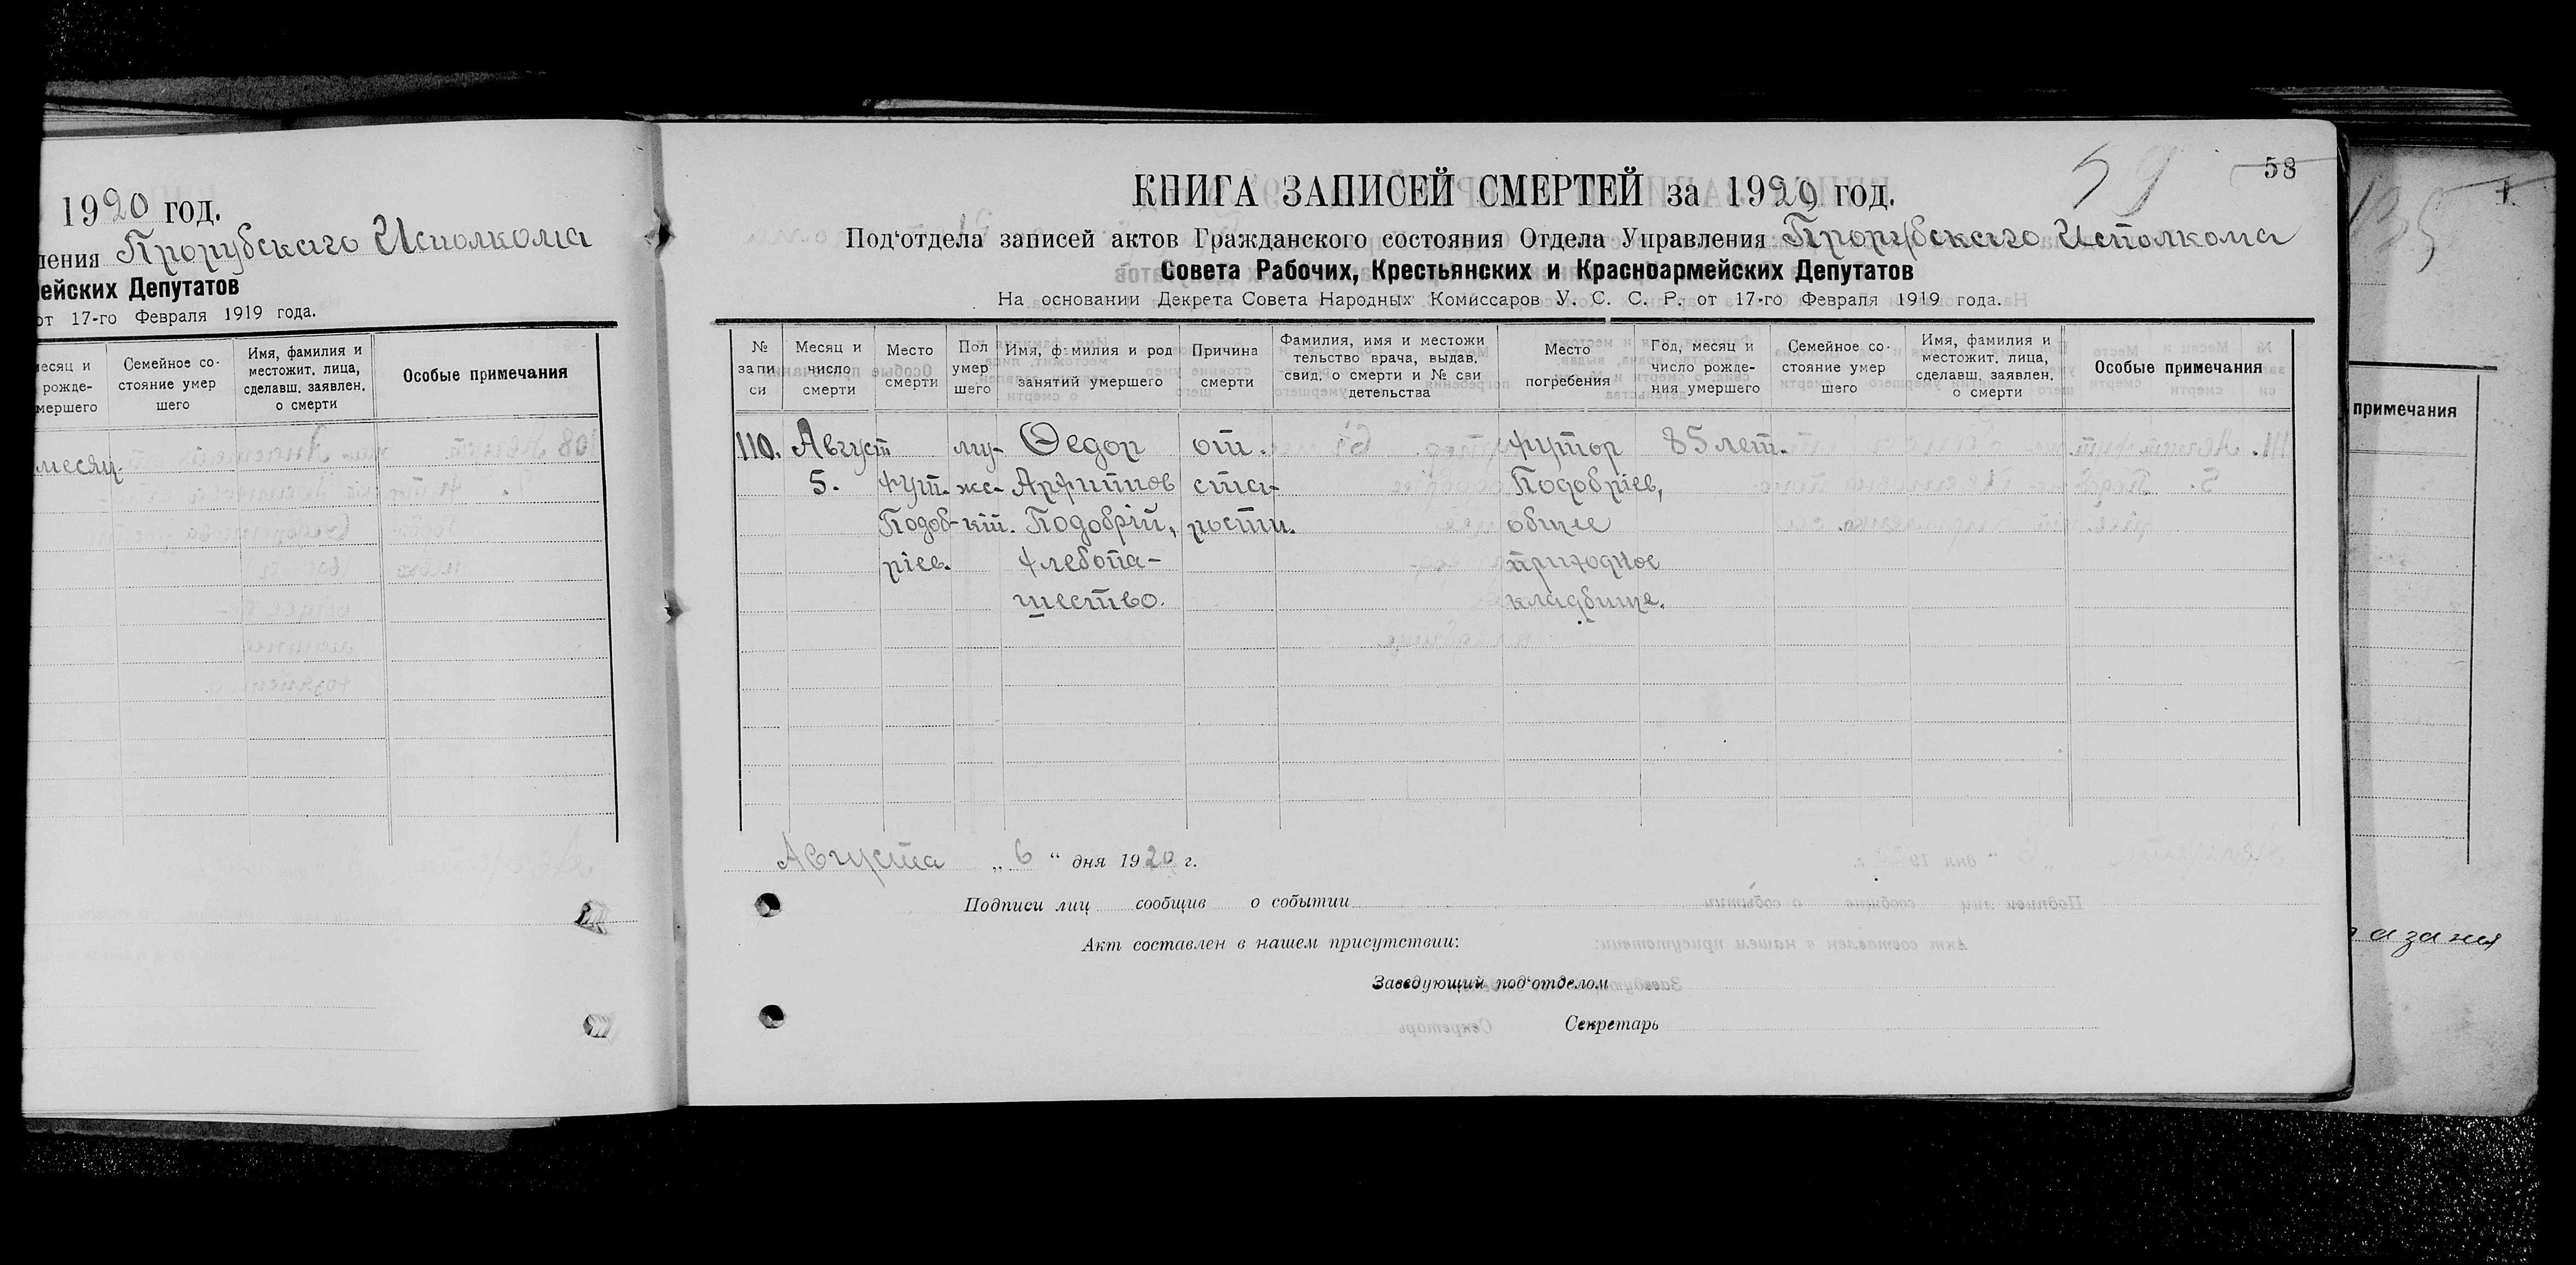 1920 год.
ления Прорубскаго Исполкома
ейских Депутатов
от 17-го Февраля 1919 года.
месяц и
рожде-
мершего
Семейное со-
стояние умер
шего
Имя, фамилия и
местожит. лица,
сделавш. заявлен.
о смерти
Особые примечания
месяц.
58
59
КНИГА ЗАПИСЕЙ СМЕРТЕЙ за 1920 год.
Под'отдела записей актов Гражданского состояния Отдела Управления Прорубскаго Исполкома
Совета Рабочих, Крестьянских и Красноармейских Депутатов
На основании Декрета Совета Народных Комиссаров У. С. С. Р. от 17-го Февраля 1919 года.
№
запи
си
Месяц и
число
смерти
Место
смерти
Пол
умер
шего
Имя, фамилия и род
занятий умершего
Причина
смерти
Фамилия, имя и местожи
тельство врача, выдав.
свид. о смерти и № сви
детельства
Место
погребения
Год, месяц и
число рожде-
ния умершего
Семейное со-
стояние умер
шего
Имя, фамилия и
местожит. лица,
сделавш. заявлен.
о смерти
Особые примечания
110. Август му- Федор от. хутор 85 лет.
5. хут. жс- Архипов ста- Подобріев,
Подоб- кій. Подобрій, рости. общее
ріев. хлебопа- приходное
шество. кладбище.
Августа „ 6 “ дня 1920 г.
Подписи лиц сообщив о событии
Акт составлен в нашем присутствии:
Заведующий под'отделом
Секретарь
135
1.
примечания